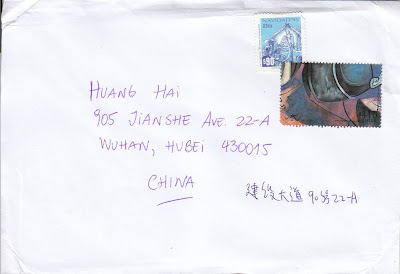 $90
HUANG HAI
905 JIANSHE AVE. 22-A
WUHAN, HUBEI 430015
CHINA
建设大道 905号22-A